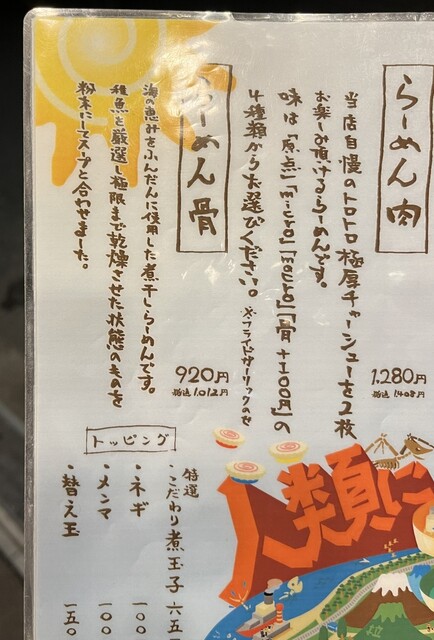 らーめん 肉
当店自慢のトロトロ極厚チャーシューを2枚
お楽しみ頂けるらーめんです。
味は「原点」「micro」「macro」「骨+100円」の
4種類からお選びください。※フライドガーリックのせ
1.280円
税込 1.408円
らーめん 骨
海の恵みをふんだんに使用した煮干しらーめんです。
稚魚を厳選し極限まで乾燥させた状態のものを
粉末にしてスープと合わせました。
920円
税込 1.012円
トッピング
特選
・こだわり煮玉子 六五
・ネギ 一〇〇
・メンマ 一〇〇
・替え玉 一五〇
人類に